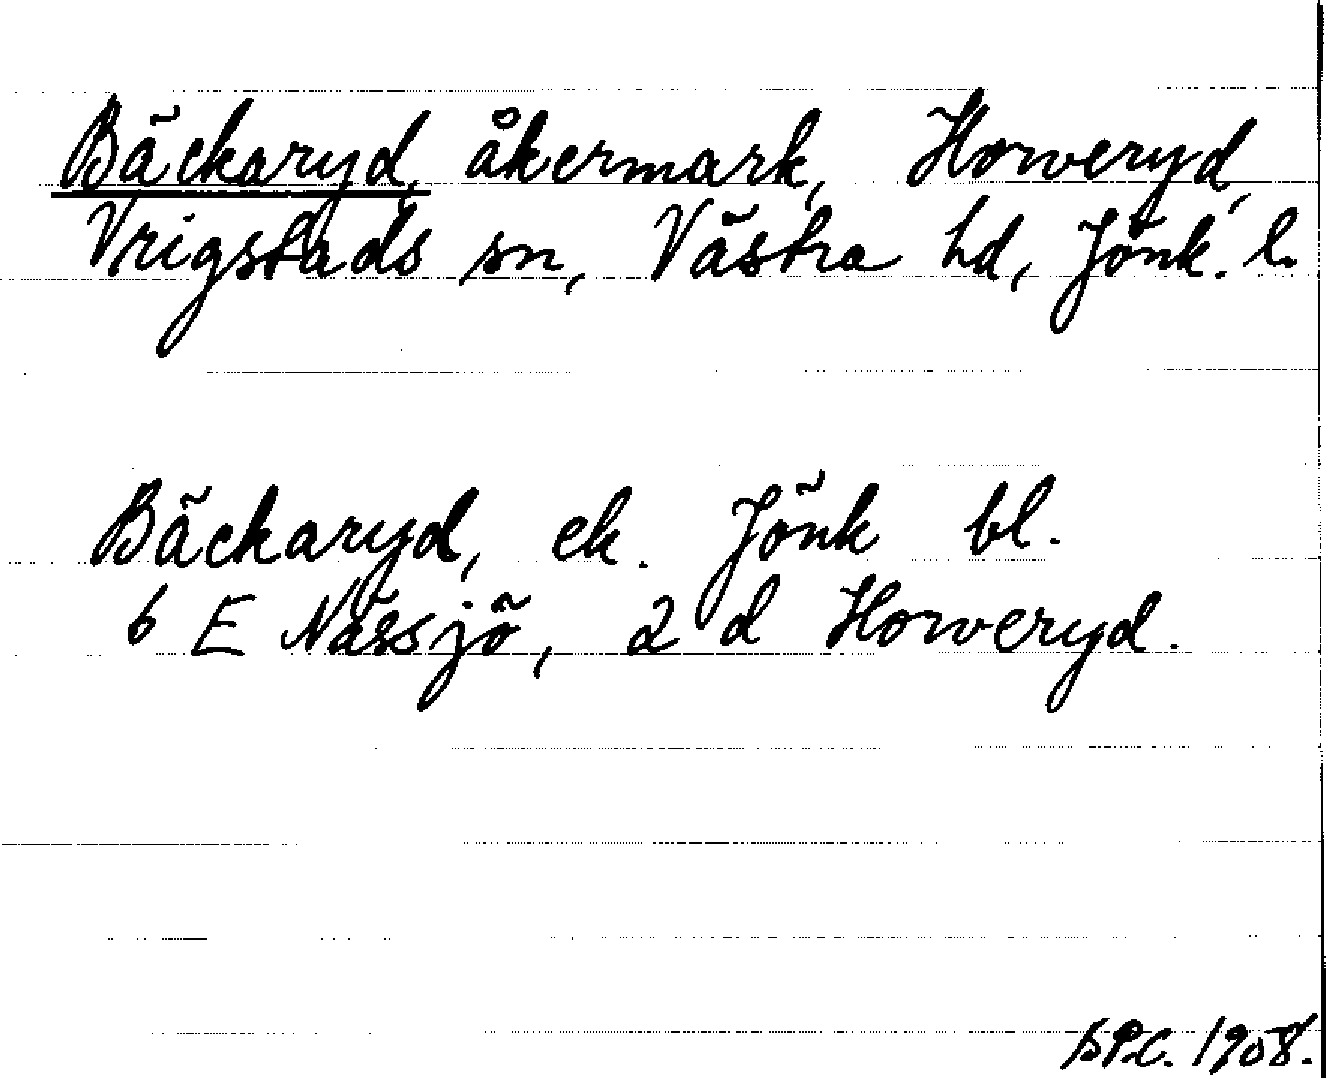 Bäckaryd, åkermark, Horveryd,
Vrigstads sn, Västra hd, Jönk. l.
Bäckaryd, ek. Jönk bl.
6 E Nässjö, 2 d Horveryd.
1908.